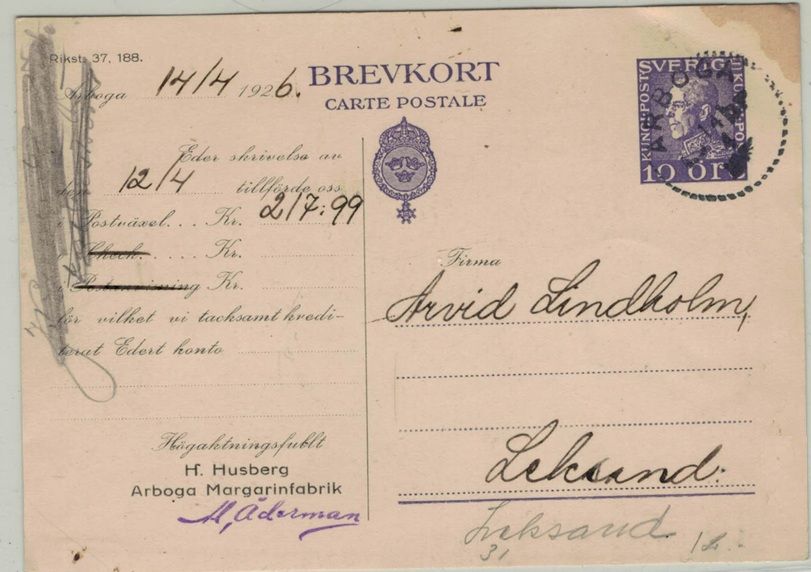 Rikst. 37, 188.
Arboga 14/4 1926.
Eder skrivelse av
den 12/4 tillförde oss
i Postväxel... Kr. 217:99
„ Check...... Kr.
„ Postanvisning Kr.
för vilket vi tacksamt kredi-
terat Edert konto
Högaktningsfullt
H. Husberg
Arboga Margarinfabrik
M, Åderman
BREVKORT
CARTE POSTALE
SVERIGE
KUNGL. POST
10 ÖRE
ARBOGA
Firma
Arvid Lindholm,
Leksand.
Leksand
31